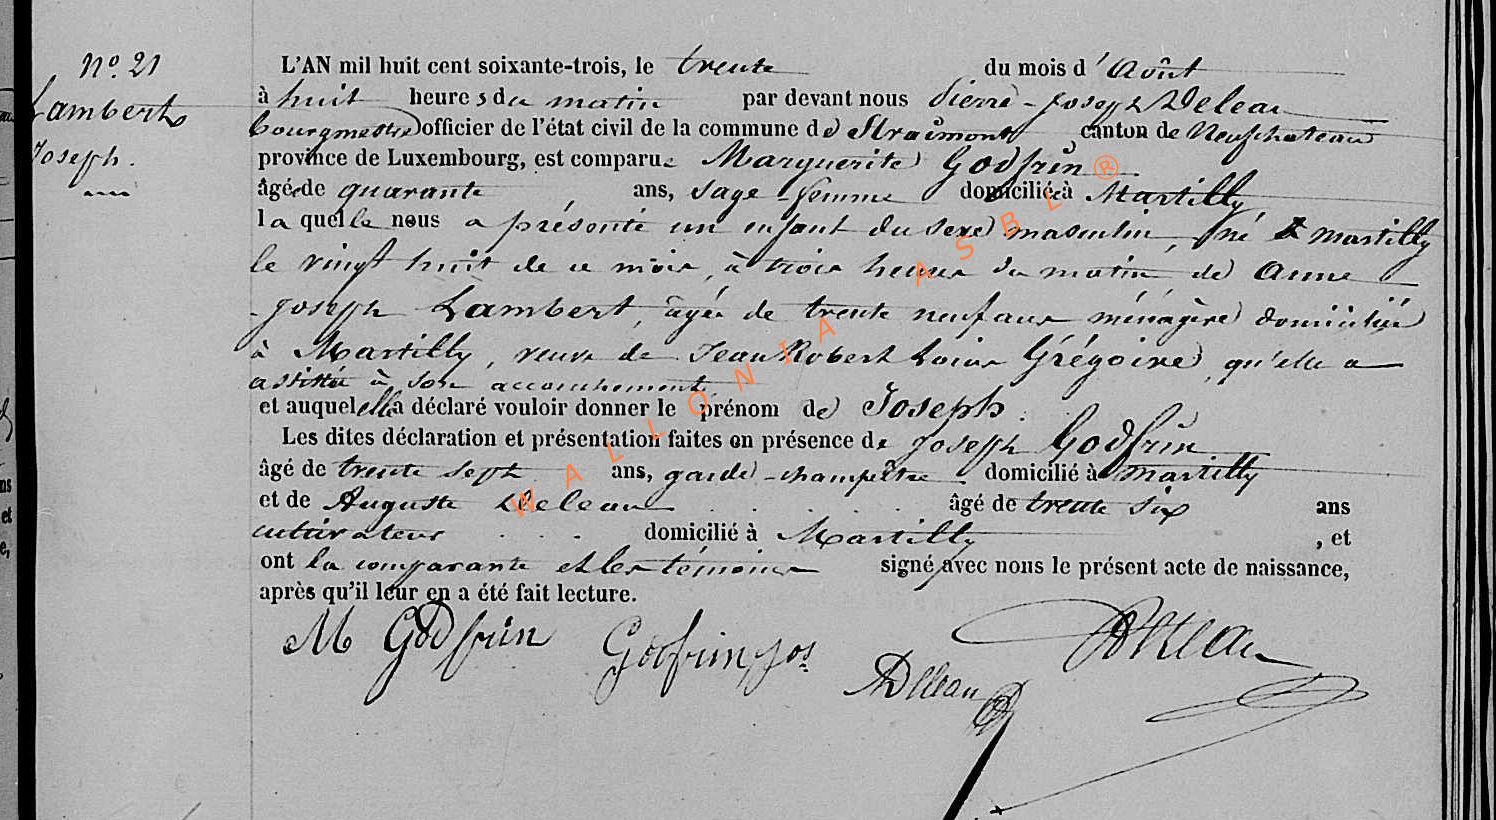 N° 21
Lambert
Joseph.
L'AN mil huit cent soixante-trois, le trente du mois d'Août
à huit heures du matin par devant nous Pierre-Joseph Deleau
bourgmestre officier de l'état civil de la commune de Straimont canton de Neufchateau
province de Luxembourg, est comparue Marguerite Godfrin
âgée de quarante ans, sage-femme domiciliée à Martilly
laquelle nous a présenté un enfant du sexe masculin, né à Martilly
le vingt huit de ce mois, à trois heures du matin, de Anne
-Joseph Lambert, âgée de trente neuf ans ménagère domiciliée
à Martilly, veuve de Jean Robert Grégoire, qu'elle a
assistée à son accouchement
et auquel elle a déclaré vouloir donner le prénom de Joseph.
Les dites déclaration et présentation faites en présence de Joseph Godfrin
âgé de trente sept ans, garde-champêtre domicilié à Martilly
et de Auguste Deleau âgé de trente six ans
cultivateur domicilié à Martilly, et
ont la comparante et les témoins signé avec nous le présent acte de naissance,
après qu'il leur en a été fait lecture.
M Godfrin Godfrin Jos
ADeleau
WALLONIA ASBL®